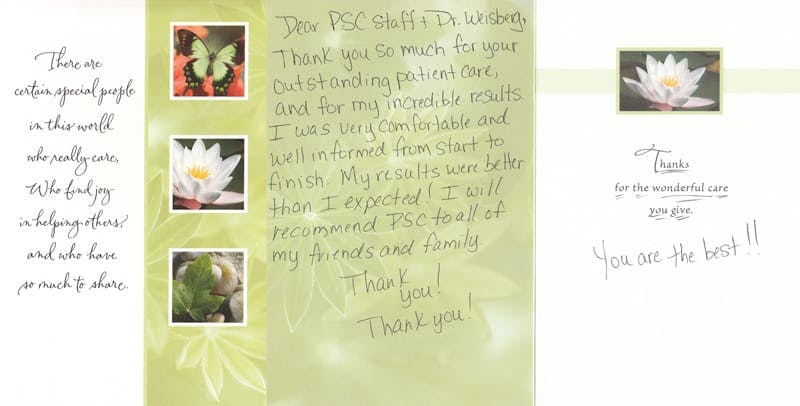 There are
certain special people
in this world
who really care,
Who find joy
in helping others,
and who have
so much to share.
Dear PSC Staff + Dr. Weisberg,
Thank you so much for your
outstanding patient care,
and for my incredible results.
I was very comfortable and
well informed from start to
finish. My results were better
than I expected! I will
recommend PSC to all of
my friends and family.
Thank
you!
Thank you!
Thanks
for the wonderful care
you give.
You are the best!!